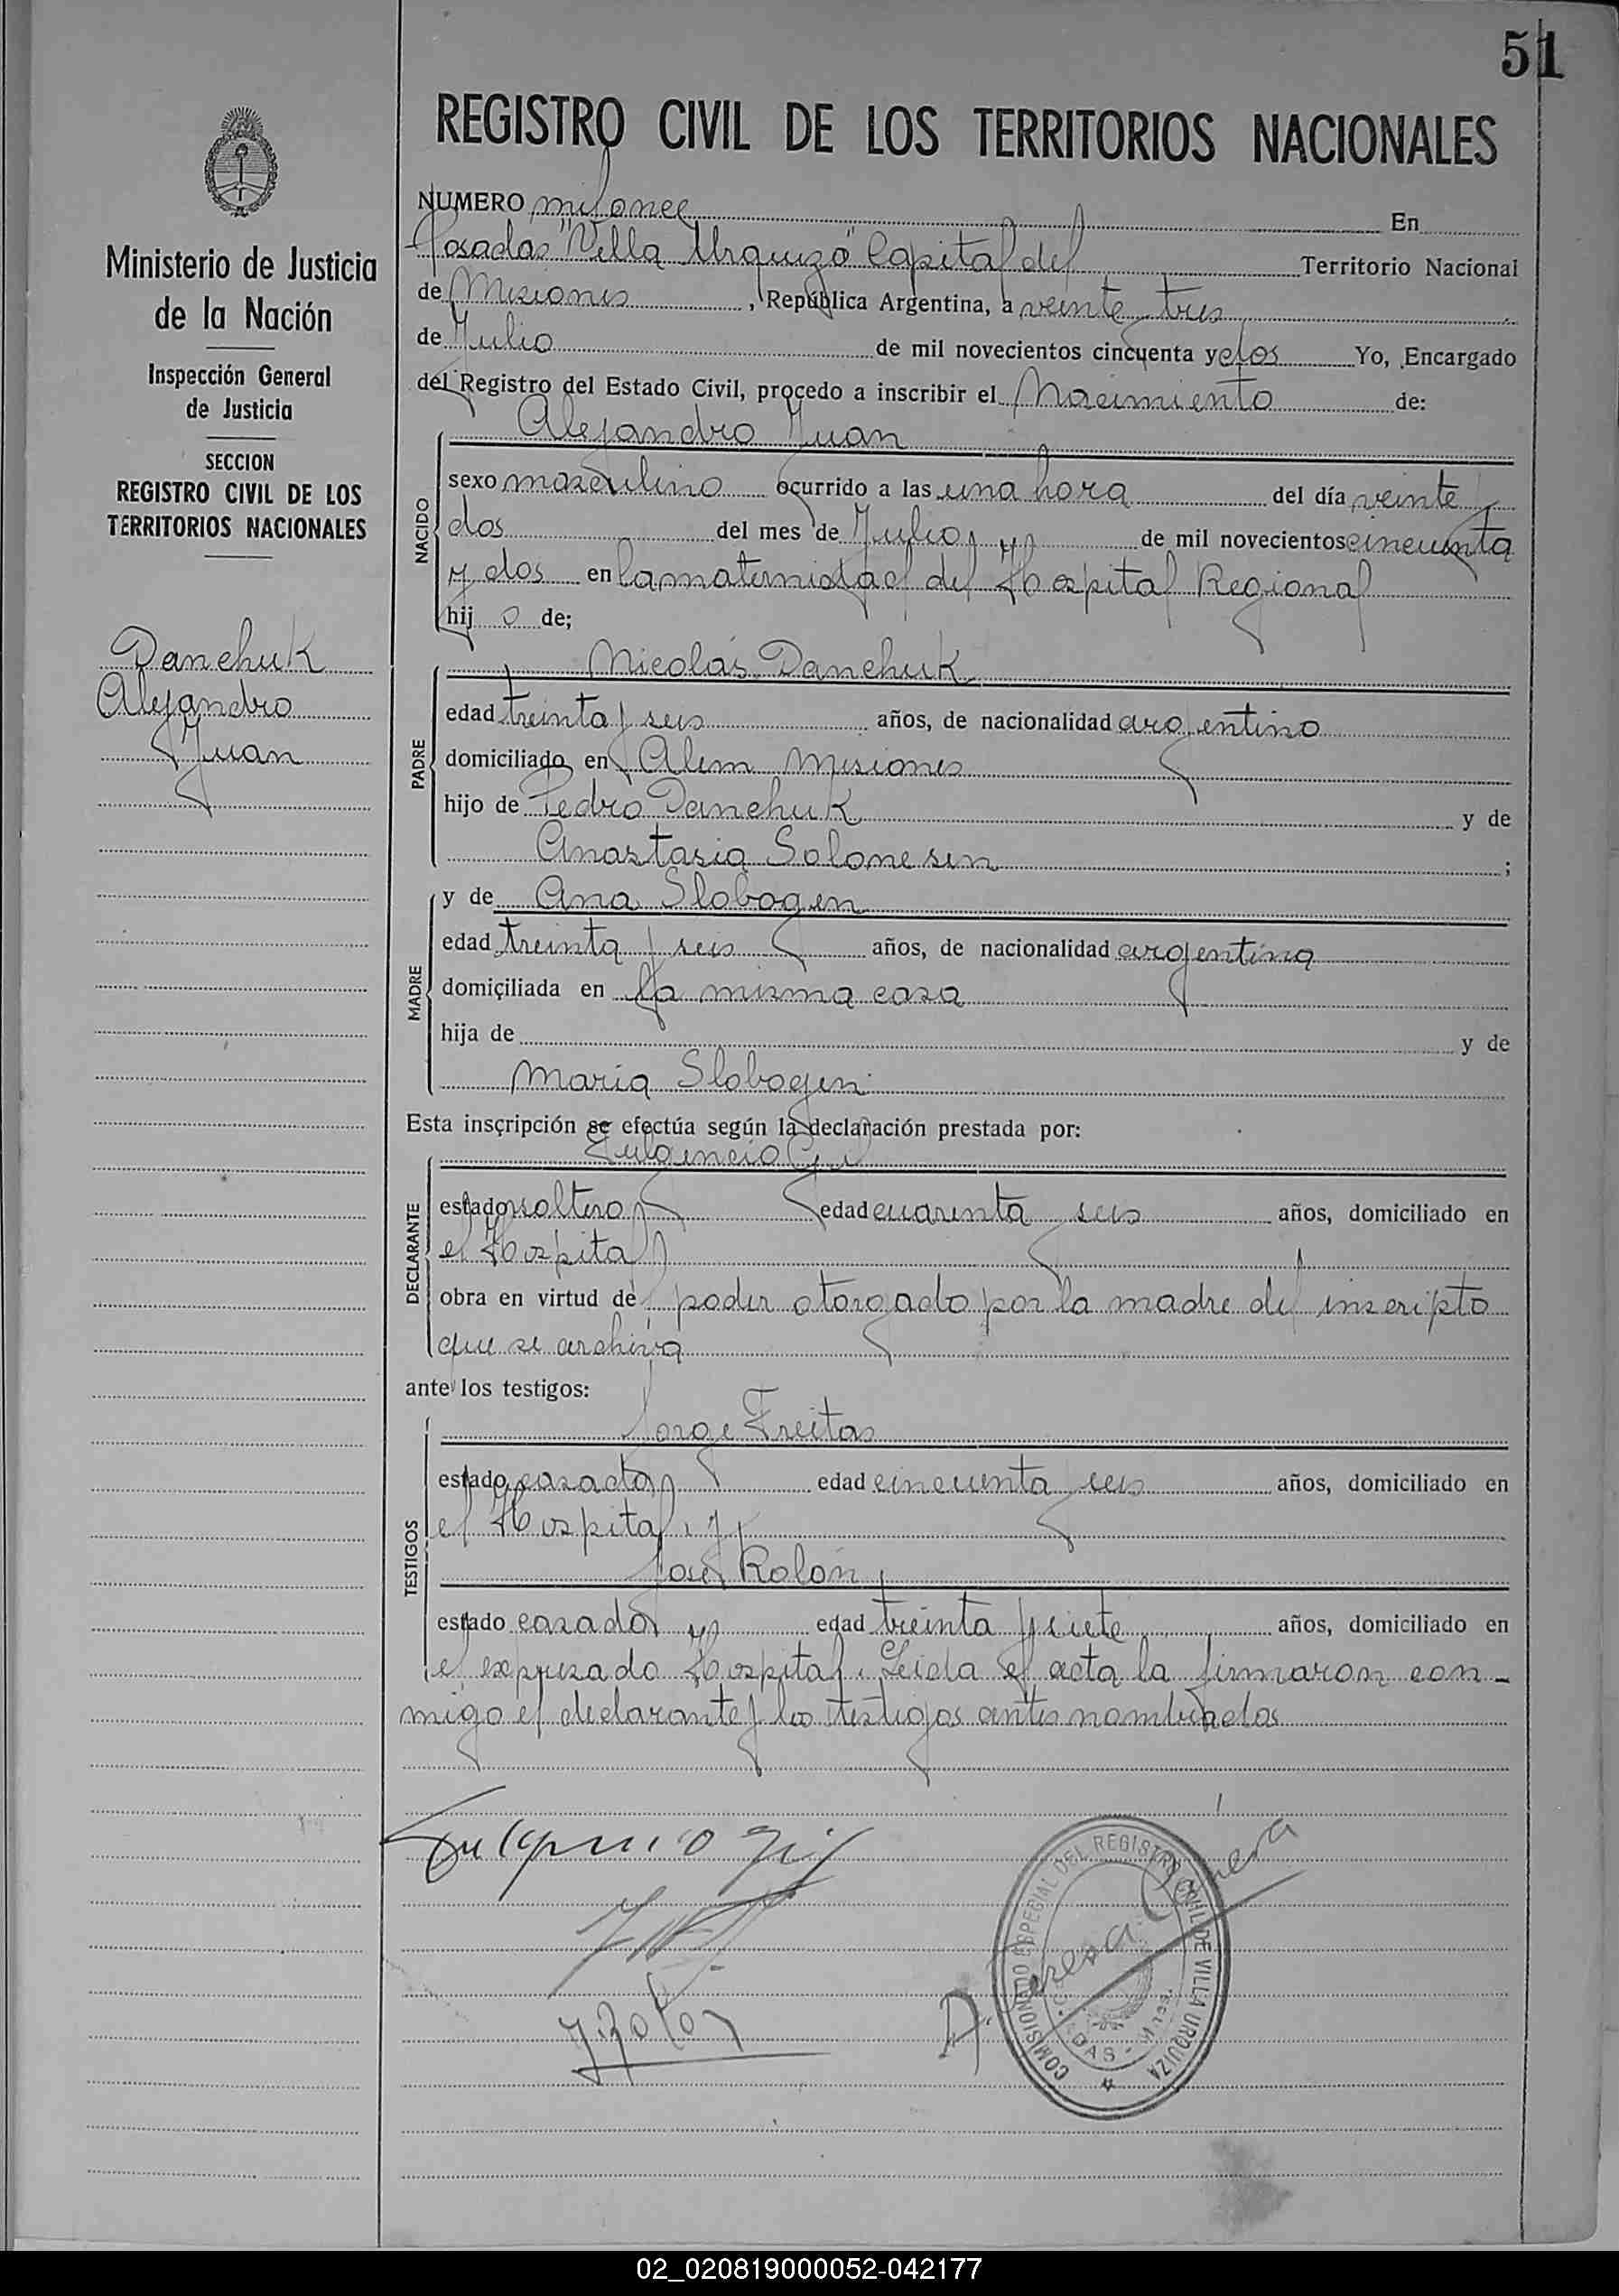 51
REGISTRO CIVIL DE LOS TERRITORIOS NACIONALES
Ministerio de Justicia
de la Nación
Inspección General
de Justicia
SECCION
REGISTRO CIVIL DE LOS
TERRITORIOS NACIONALES
Danchuk
Alejandro
Juan
NUMERO mil once En
Posadas "Villa Urquiza" Capital del Territorio Nacional
de Misiones, República Argentina, a veinte tres
de Julio de mil novecientos cincuenta y dos Yo, Encargado
del Registro del Estado Civil, procedo a inscribir el Nacimiento de:
NACIDO
Alejandro Juan
sexo masculino ocurrido a las una hora del día veinte
dos del mes de Julio de mil novecientos cincuenta
y dos en la maternidad del Hospital Regional
hij o de;
PADRE
Nicolás Danchuk
edad treinta y seis años, de nacionalidad argentino
domiciliado en Alem Misiones
hijo de Pedro Danchuk y de
Anastasia ;
MADRE
y de Ana Slobogen
edad treinta y seis años, de nacionalidad argentina
domiciliada en la misma casa
hija de y de
Maria Slobogen
Esta inscripción se efectúa según la declaración prestada por:
DECLARANTE
Fulgencio Gil
estado soltero edad cuarenta y seis años, domiciliado en
el Hospital
obra en virtud de poder otorgado por la madre del inscripto
que se archiva
ante los testigos:
TESTIGOS
Jorge Freitas
estado casado edad cincuenta y seis años, domiciliado en
el Hospital, y
José Rolón
estado casado edad treinta y siete años, domiciliado en
el expresado Hospital. Leida el acta la firmaron con-
migo el declarante y los testigos antes nombrados
Fulgencio Gil
J. Rolon
COMISIONADO ESPECIAL DEL REGISTRO CIVIL DE VILLA URQUIZA
02_020819000052-042177